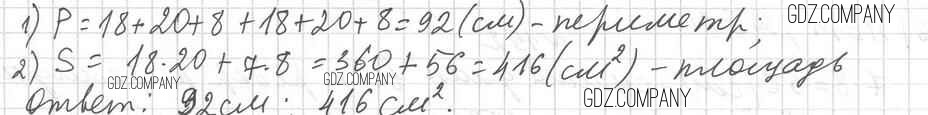 1) P = 18+20+8+18+20+8=92 (см) - периметр; GDZ.COMPANY
2) S = 18·20 + 7·8 = 360 + 56 = 416 (см²) - площадь
GDZ.COMPANY GDZ.COMPANY
Ответ: 92 см; 416 см². GDZ.COMPANY